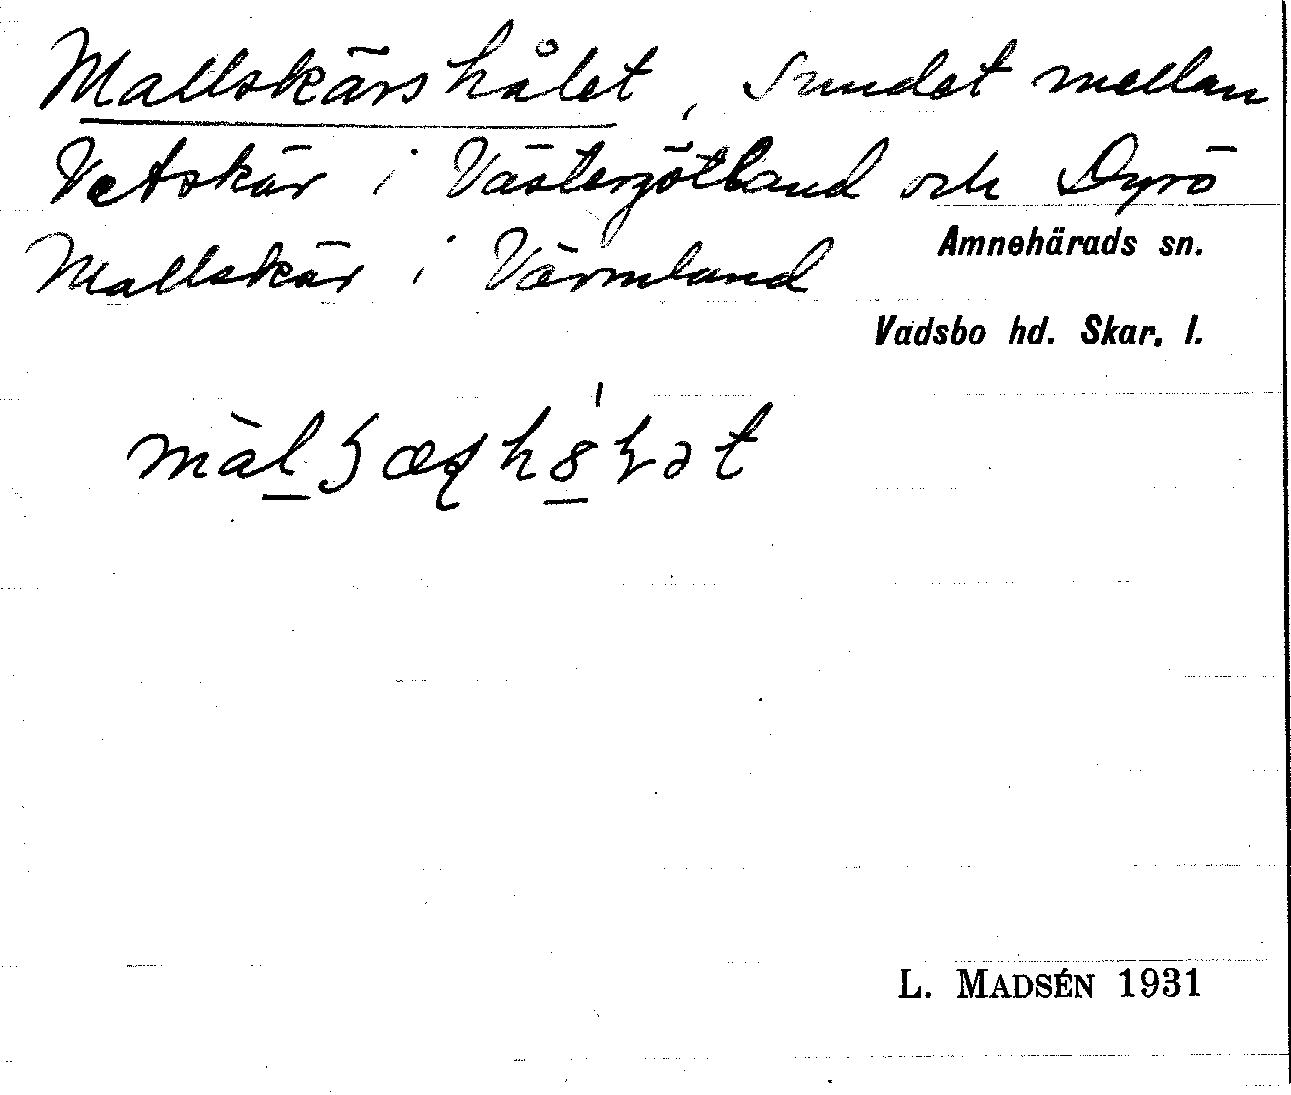 Mallskärshålet, Sundet mellan
Vetskär i Västergötland och Dyrö
Mallskär i Värmland
Amnehärads sn.
Vadsbo hd. Skar. l.
L. MADSÉN 1931